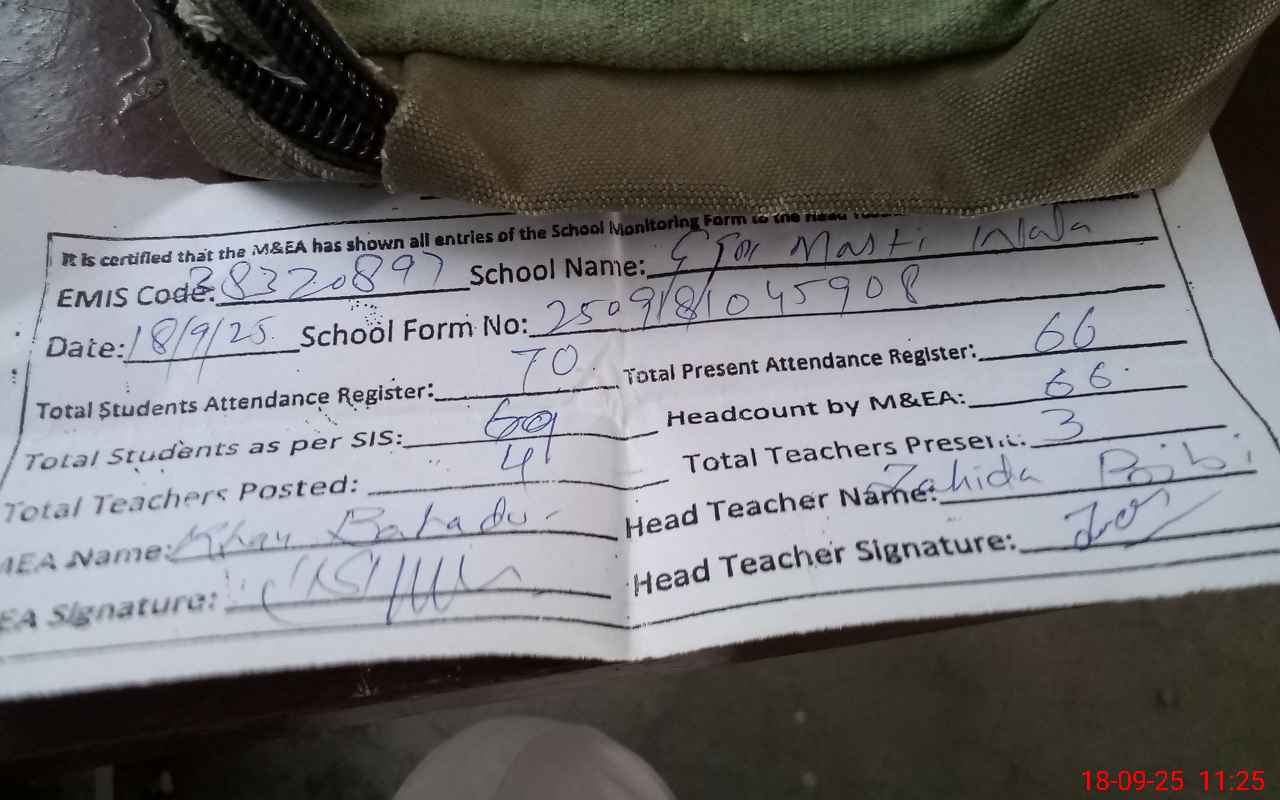 It is certified that the M&EA has shown all entries of the School Monitoring Form to the Head
EMIS Code: 38320897 School Name: Masti Wala
Date: 18/9/25 School Form No: 2509181045908
Total Students Attendance Register: 70 Total Present Attendance Register: 66
Total Students as per SIS: 69 Headcount by M&EA: 66
Total Teachers Posted: 4 Total Teachers Present: 3
MEA Name: Khan Bahadur Head Teacher Name: Zahida Bibi
EA Signature: Head Teacher Signature:
18-09-25 11:25